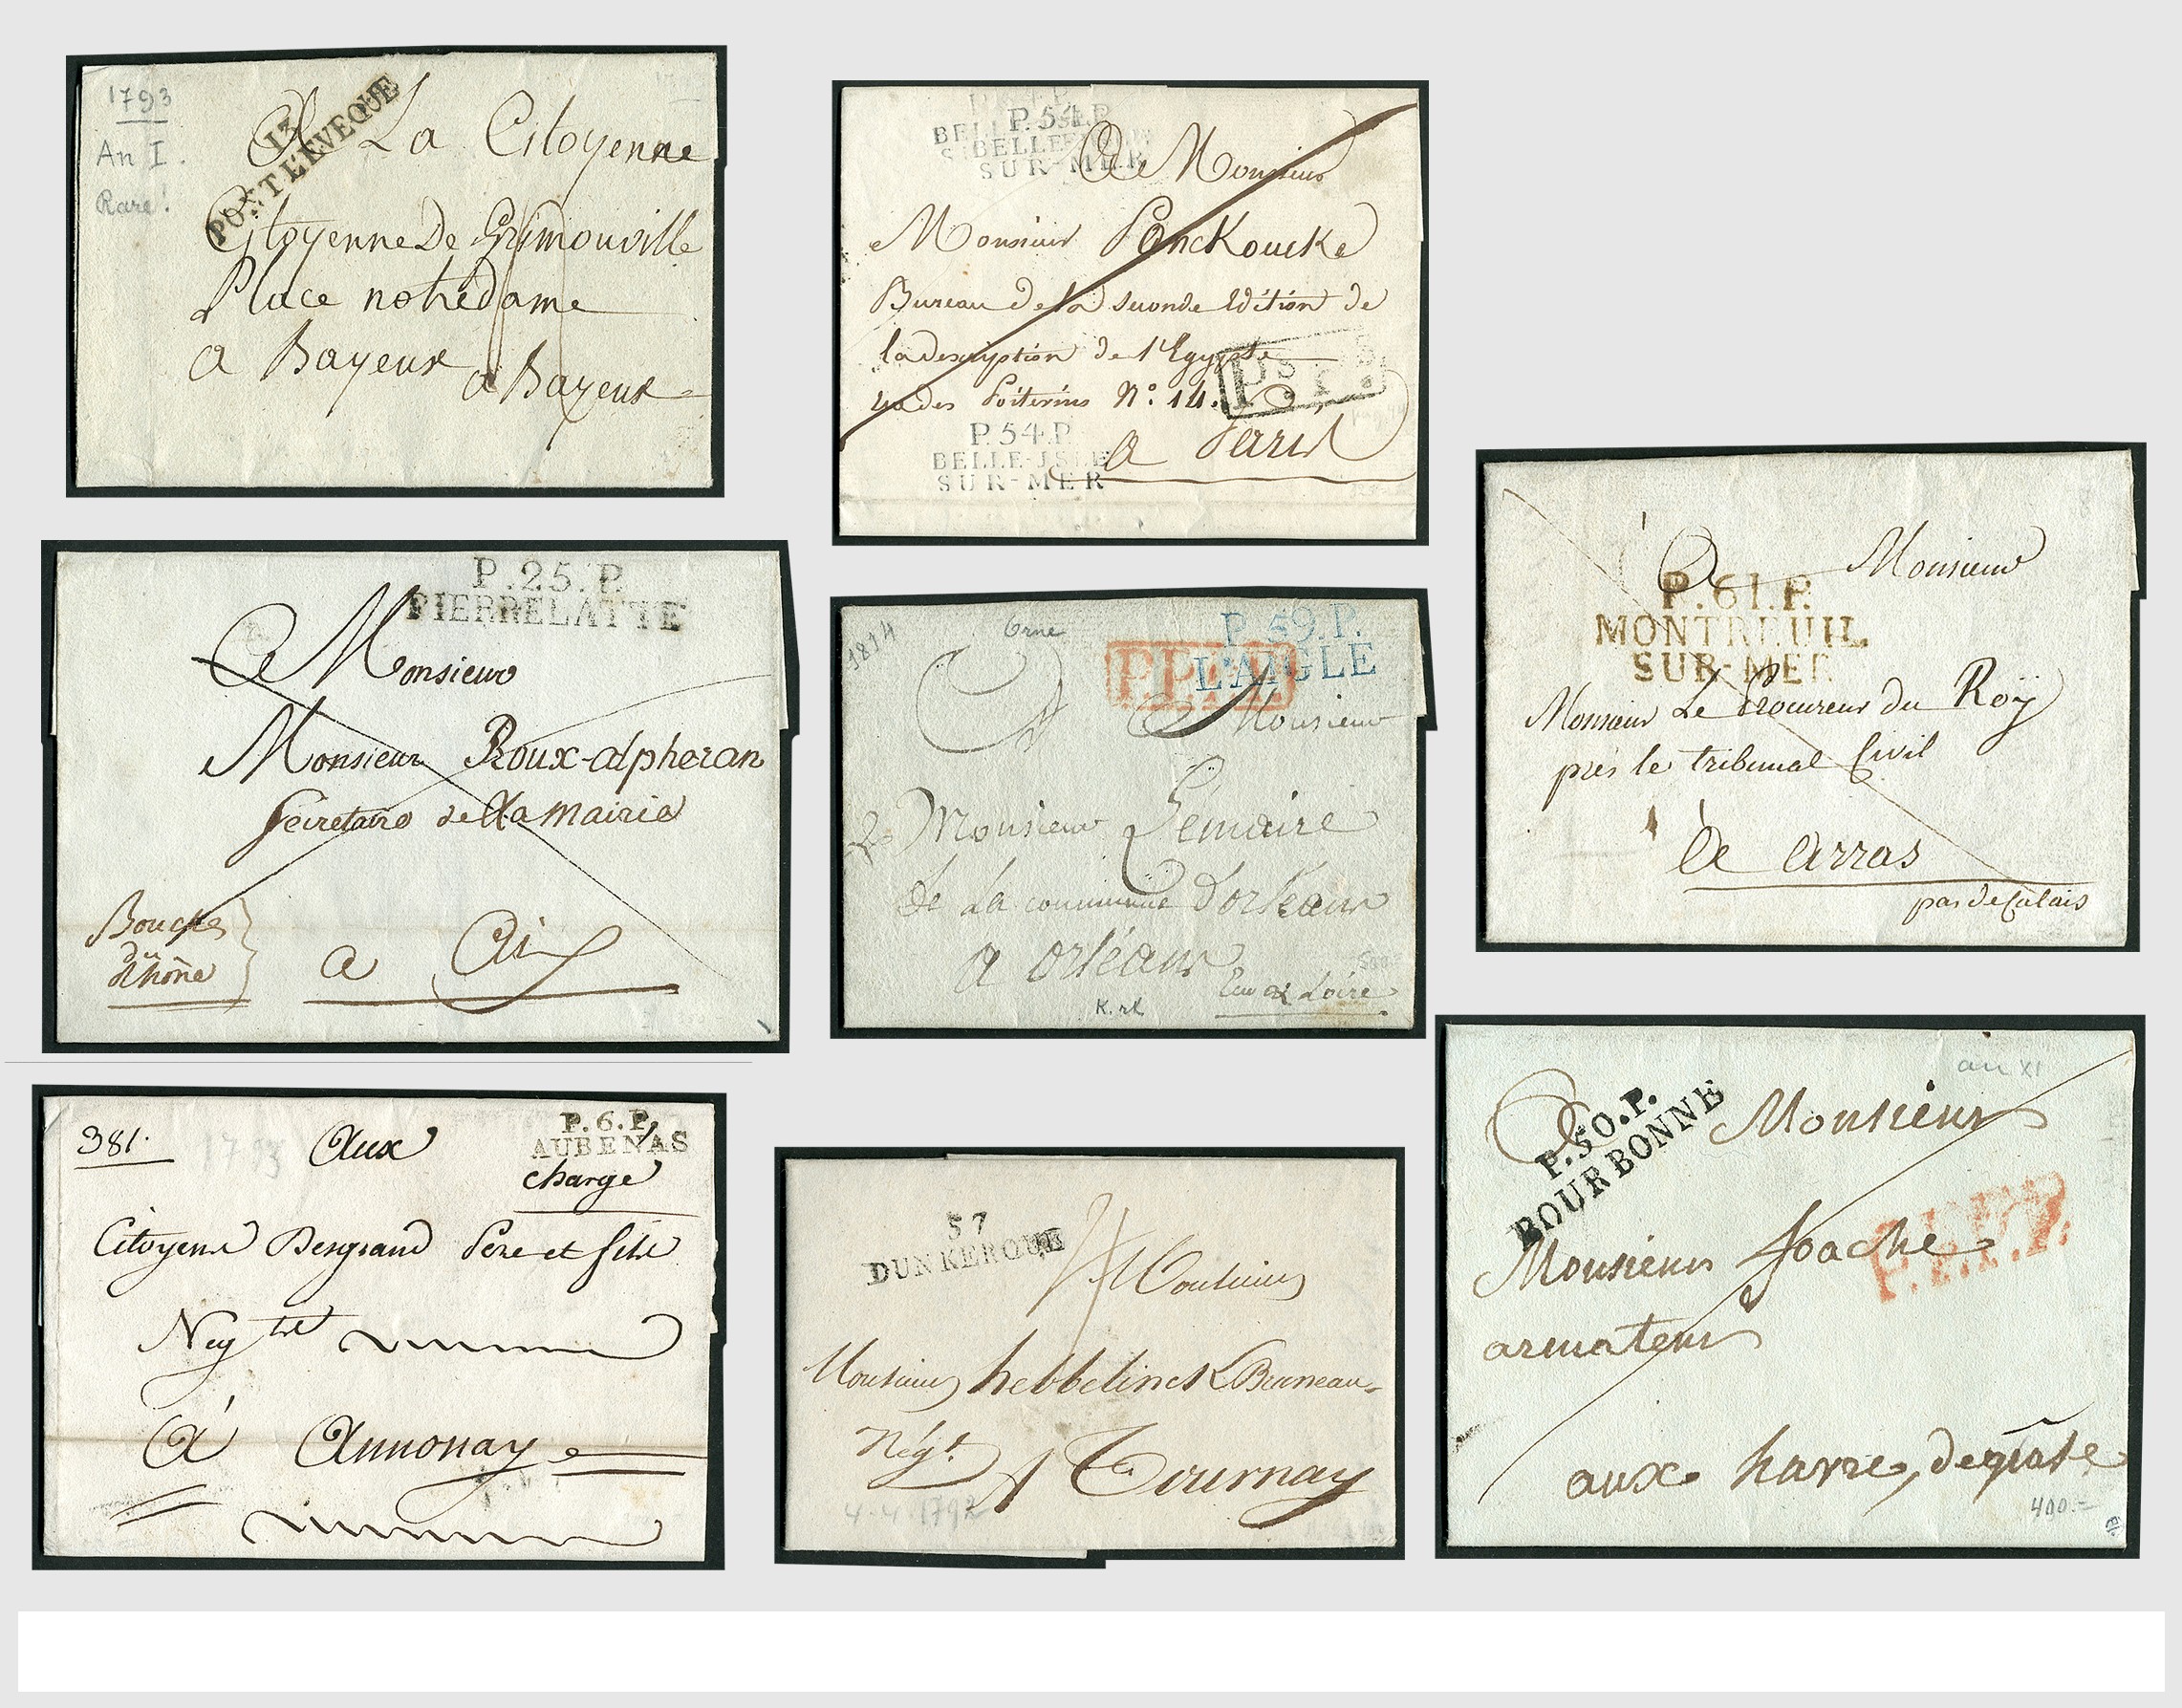 1793
An I.
Rare!
13
PONT L'EVEQUE
A La Citoyenne
Citoyenne De Grimouville
Place notredame
a Bayeux a Bayeux
P.54.P.
BELLE-ISLE
SUR-MER
A Monsieur
Monsieur Panckoucke
Bureau de la seconde Edition de
la description de l'Egypte
rue des Poitevins N.º 14.
P.54.P.
BELLE-ISLE
SUR-MER
a Paris
P.25.P.
PIERRELATTE
A Monsieur
Monsieur Roux-alpheran
Secretaire de La mairie
Bouches
du
Rhône
a Aix
1814
Orne
P.59.P.
L'AIGLE
P.P.P.P.
A Monsieur
Monsieur Lemaire
de La commune d'orléans
a orléans
K. rl
P.61.P.
MONTREUIL
SUR-MER
A Monsieur
Monsieur Le Procureur du Roÿ
près le tribunal Civil
à arras
pas de Calais
381.
1793
Aux
P.6.P.
AUBENAS
chargé
Citoyens Desgrand Pere et fils
Negts
à Annonay
57
DUNKERQUE
4 Monsieur
Monsieur hebbelinck Bruneau
Négt.
A Tournay
4-4-1792
an XI
P.50.P.
BOURBONNE
A Monsieur
Monsieur foache
P.P.P.P.
armateur
aux havre, de grâse
400.=